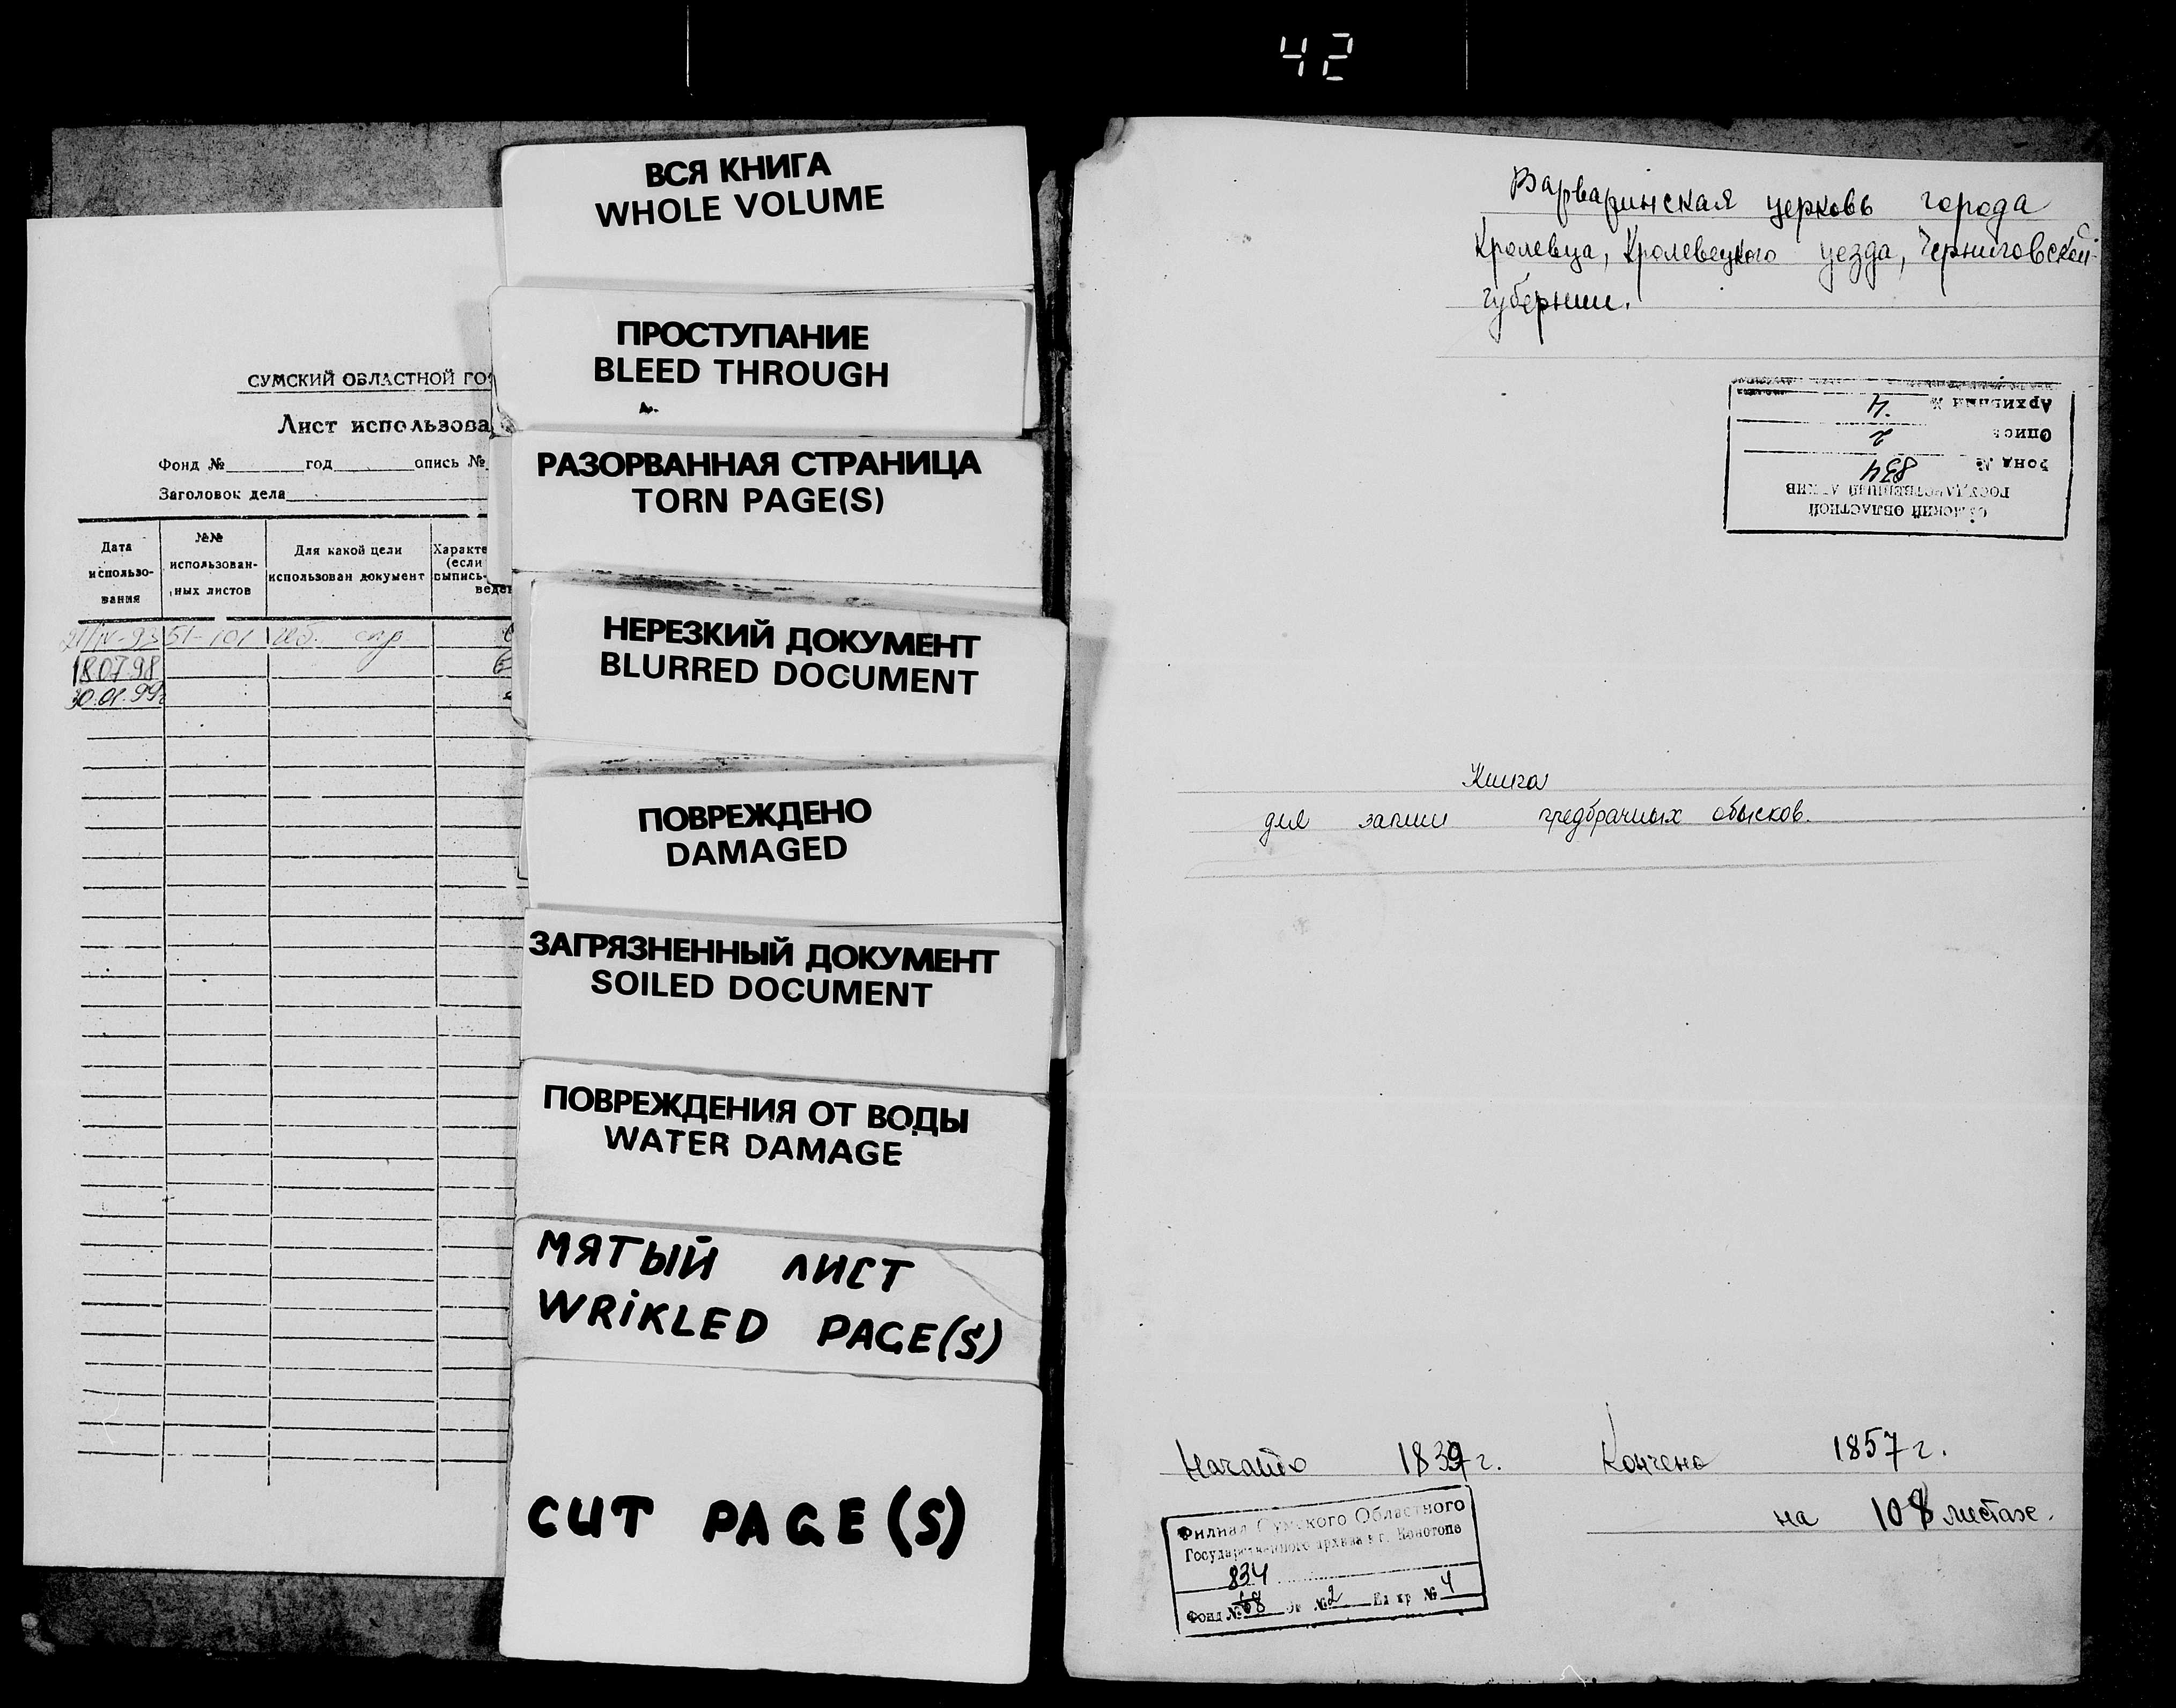 42
СУМСКИЙ ОБЛАСТНОЙ ГО
Лист использова
Фонд № год опись №
Заголовок дела
Дата использо-вания
№№ использован-ных листов
Для какой цели использован документ
Характе (если выпись- веден
21/IV-93 51-101
18.07.98
30.01.99
ВСЯ КНИГА
WHOLE VOLUME
ПРОСТУПАНИЕ
BLEED THROUGH
РАЗОРВАННАЯ СТРАНИЦА
TORN PAGE(S)
НЕРЕЗКИЙ ДОКУМЕНТ
BLURRED DOCUMENT
ПОВРЕЖДЕНО
DAMAGED
ЗАГРЯЗНЕННЫЙ ДОКУМЕНТ
SOILED DOCUMENT
ПОВРЕЖДЕНИЯ ОТ ВОДЫ
WATER DAMAGE
МЯТЫЙ ЛИСТ
WRIKLED PAGE(S)
CUT PAGE(S)
Варваринская церковь города
Кролевца, Кролевецкого уезда, Черниговской
губернии.
СУМСКИЙ ОБЛАСТНОЙ
ГОСУДАРСТВЕННЫЙ АРХИВ
Фонд № 834
Опись 2
Архивный № 4
Книга
для записи предбрачных обысков.
Начато 1839 г. Кончено 1857 г.
на 108 листах.
Филиал Сумского Областного
Государственного архива в г. Конотопе
834
Фонд № 68 оп №2 Ед хр № 4